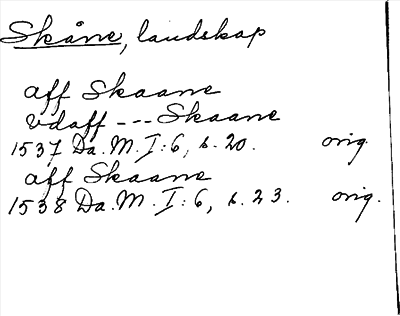 Skåne, landskap
aff Skaane
vdaff --- Skaane
1537 Da. M. I: 6, s. 20. orig.
aff Skaane
1538 Da. M. I: 6, s. 23. orig.